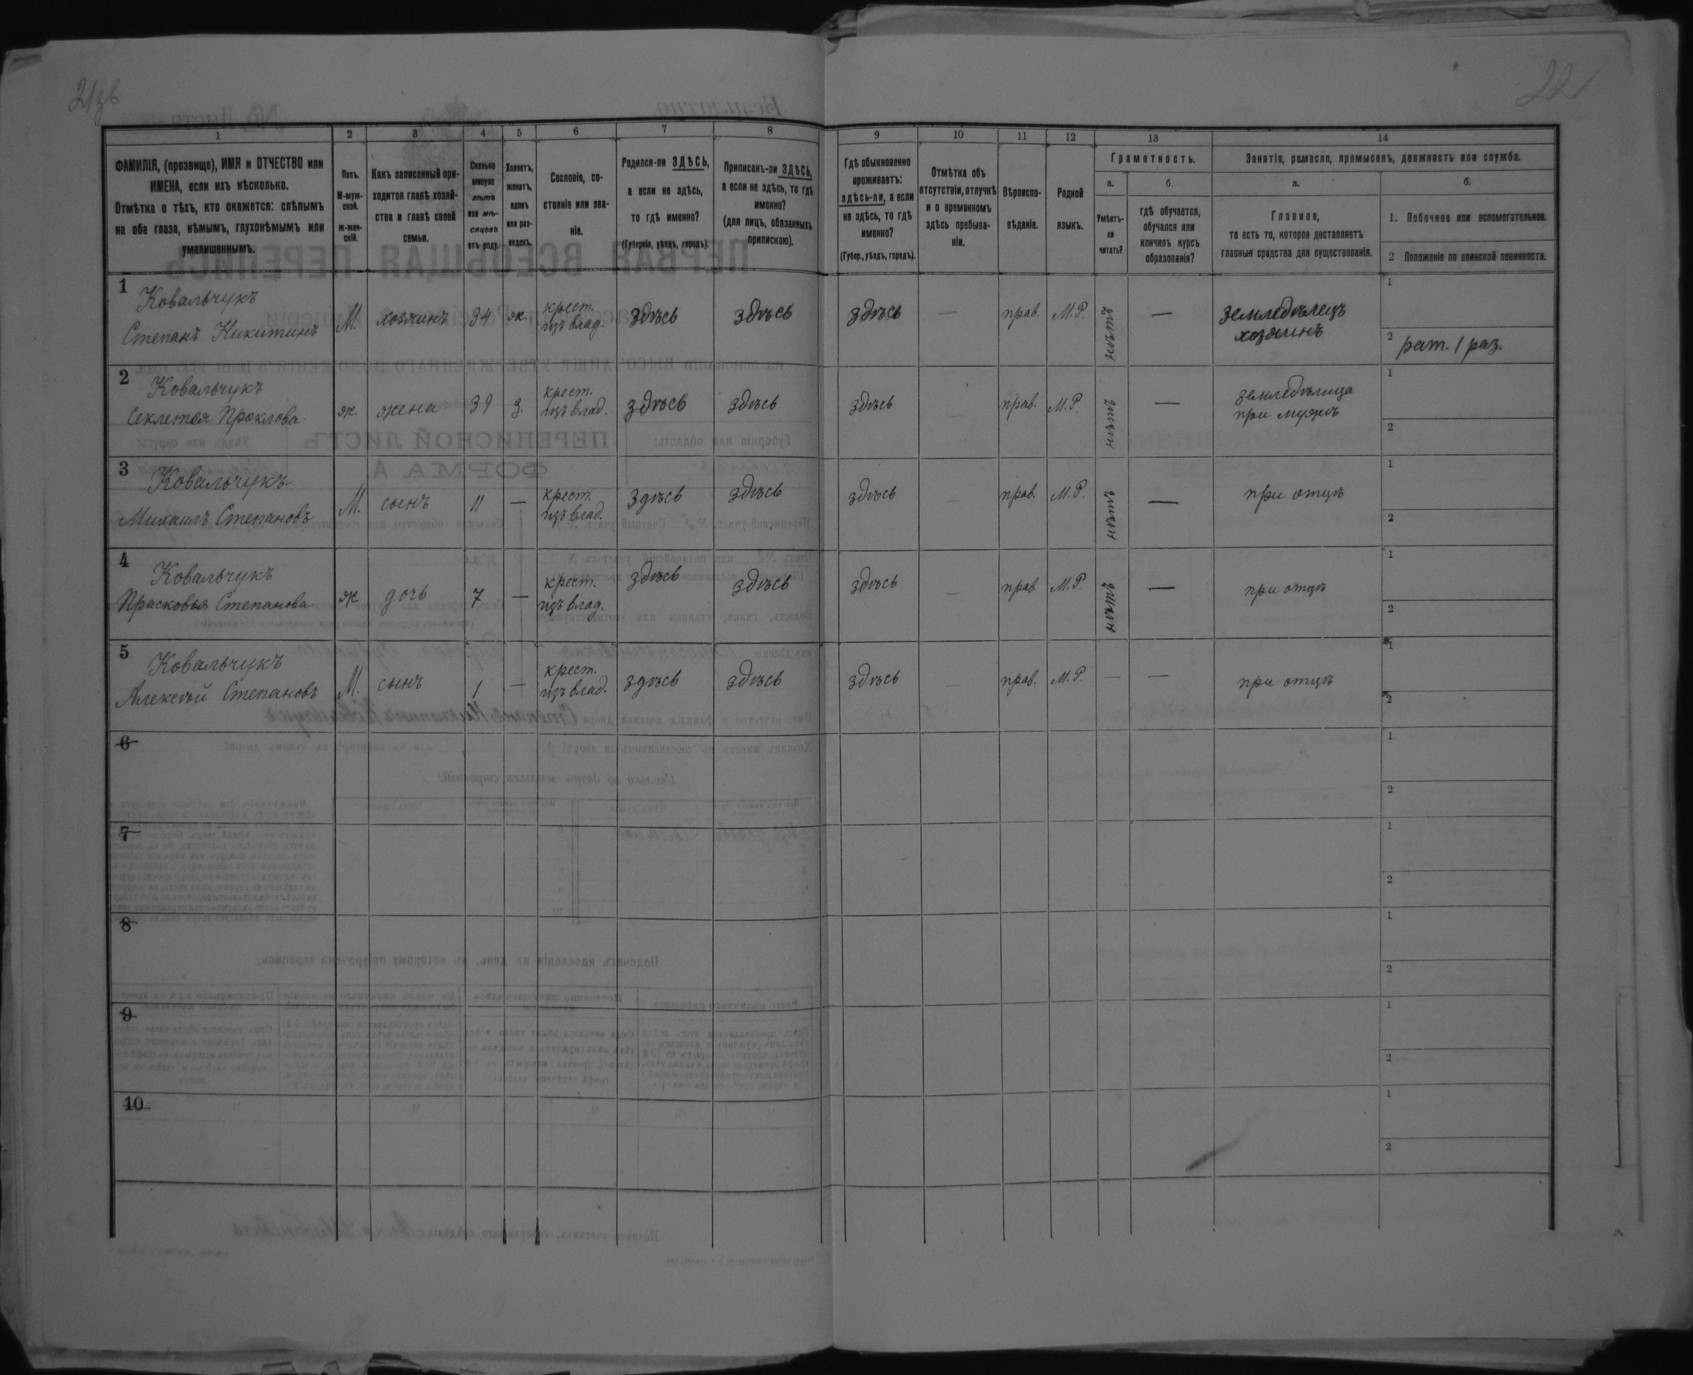 21зв
22
1 2 3 4 5 6 7 8 9 10 11 12 13 14
ФАМИЛІЯ, (прозвище), ИМЯ и ОТЧЕСТВО или ИМЕНА, если ихъ нѣсколько.
Отмѣтка о тѣхъ, кто окажется: слѣпымъ на оба глаза, нѣмымъ, глухонѣмымъ или умалишеннымъ.
Полъ.
М-муж-
ской.
ж-жен-
скій.
Какъ записанный при-
ходится главѣ хозяй-
ства и главѣ своей
семьи.
Сколько
минуло
лѣтъ
или мѣ-
сяцевъ
отъ роду.
Холостъ,
женатъ,
вдовъ
или раз-
веденъ.
Сословіе, со-
стояніе или зва-
ніе.
Родился-ли ЗДѢСЬ,
а если не здѣсь,
то гдѣ именно?
(Губернія, уѣздъ, городъ).
Приписанъ-ли ЗДѢСЬ,
а если не здѣсь, то гдѣ
именно?
(для лицъ, обязанныхъ
припискою).
Гдѣ обыкновенно
проживаетъ:
здѣсь-ли, а если
не здѣсь, то гдѣ
именно?
(Губер., уѣздъ, городъ).
Отмѣтка объ
отсутствіи, отлучкѣ
и о временномъ
здѣсь пребыва-
ніи.
Вѣроиспо-
вѣданіе.
Родной
языкъ.
Грамотность.
а.
Умѣетъ-
ли
читать?
б.
гдѣ обучается,
обучался или
кончилъ курсъ
образованія?
Занятіе, ремесло, промыселъ, должность или служба.
а.
Главное,
то есть то, которое доставляетъ
главныя средства для существованія.
б.
1. Побочное или вспомогательное.
2 Положеніе по воинской повинности.
1
Ковальчукъ
Степанъ Никитинъ М. хозяинъ 34 ж. крест. изъ влад. здѣсь здѣсь здѣсь — прав. М.Р. нѣтъ — земледѣлецъ хозяинъ
1
2 рат. 1 раз.
2
Ковальчукъ
Секлетея Проклова ж. жена 39 з. крест. изъ влад. здѣсь здѣсь здѣсь — прав. М.Р. нѣтъ — земледѣлица при мужѣ
1
2
3
Ковальчукъ
Михаилъ Степановъ М. сынъ 11 — крест. изъ влад. здѣсь здѣсь здѣсь — прав. М.Р. нѣтъ — при отцѣ
1
2
4
Ковальчукъ
Прасковья Степанова ж дочь 7 — крест. изъ влад. здѣсь здѣсь здѣсь прав М.Р. нѣтъ — при отцѣ
1
2
5
Ковальчукъ
Алексѣй Степановъ М. сынъ 1 — крест. изъ влад. здѣсь здѣсь здѣсь — прав. М.Р. — — при отцѣ
1
2
6
1
2
7
1
2
8
1
2
9
1
2
10
1
2